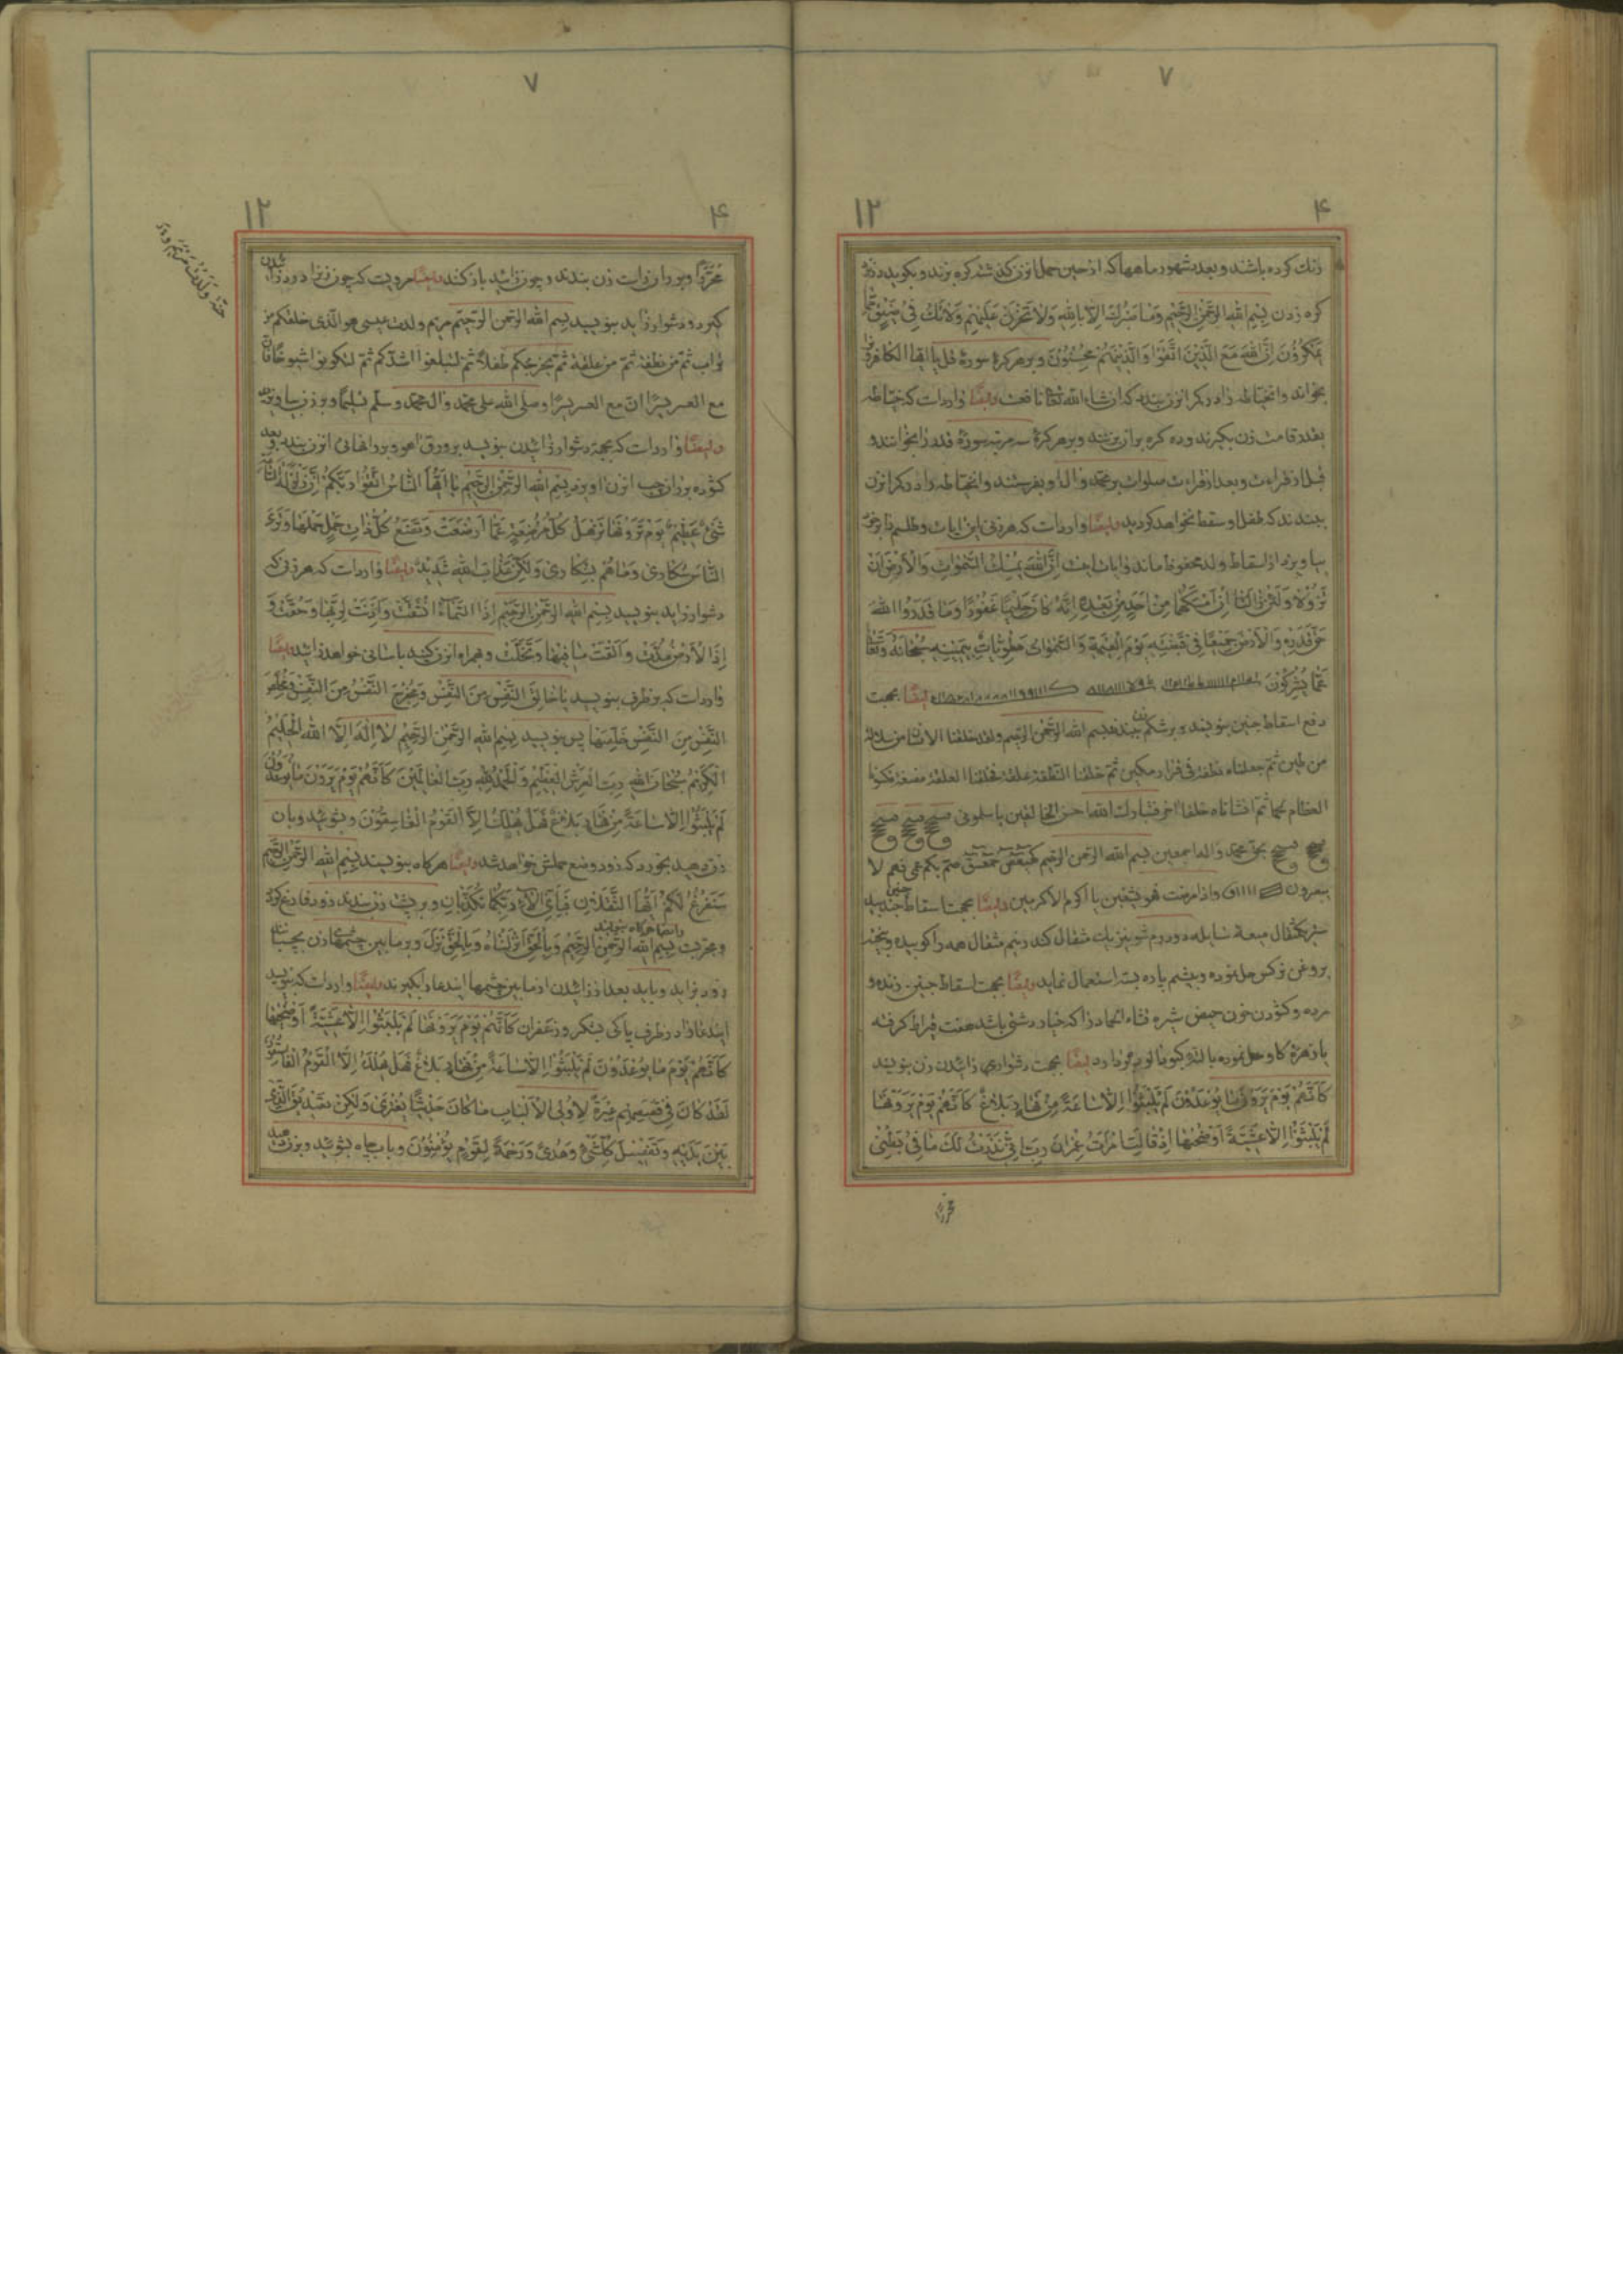 ۷
۴
۱۲
رنك كرده باشند و بعد شهور ماهها كه از حين حمل انزن كذشته كره بزند و بكويد در
كره زدن بِسْمِ اللهِ الرَّحْمٰنِ الرَّحِيْمِ وَمَا صَبْرُكَ اِلَّا بِاللهِ وَلَا تَحْزَنْ عَلَيْهِمْ وَلَا تَكُ فِيْ ضَيْقٍ مِمَّا
يَمْكُرُوْنَ اِنَّ اللهَ مَعَ الَّذِيْنَ اتَّقَوْا وَالَّذِيْنَ هُمْ مُحْسِنُوْنَ و بر هر كرهٔ سورهٔ قل يا ايها الكافرون
بخواند و انخيط را در كمر انزن بندد كه ان شاء الله تعالى نافعست و ايضًا وارد است كه خيط
بقدر قامت زن بكيرند و ده كره بر آن بزنند و بر هر كرهٔ سه مرتبه سورهٔ قدر را بخوانند و
قبل از قراءت و بعد از قراءت صلوات بر محمد و ال او بفرستند و انخيط را در كمر انزن
ببندند كه طفل او سقط نخواهد كرديد و ايضًا وارد است كه هر زنى اين ايات و طلسم را بر خود
بياويزد از اسقاط ولد محفوظ ماند و ايات اينست اِنَّ اللهَ يُمْسِكُ السَّمٰوَاتِ وَالْاَرْضَ اَنْ
تَزُوْلَا وَلَئِنْ زَالَتَا اِنْ اَمْسَكَهُمَا مِنْ اَحَدٍ مِنْ بَعْدِهِ اِنَّهُ كَانَ حَلِيْمًا غَفُوْرًا وَمَا قَدَرُوا اللهَ
حَقَّ قَدْرِهِ وَالْاَرْضُ جَمِيْعًا فِيْ قَبْضَتِهِ يَوْمَ الْقِيٰمَةِ وَالسَّمٰوَاتُ مَطْوِيَّاتٌ بِيَمِيْنِهِ سُبْحَانَهُ وَتَعَالٰى
عَمَّا يُشْرِكُوْنَ ايضًا بجهت
دفع اسقاط جنين بنويسند و بر شكم زن ببندند بسم الله الرَّحْمٰن الرحيم ولقد خلقنا الانسان من سلالة
من طين ثم جعلناه نطفة فى قرار مكين ثم خلقنا النطفة علقة فخلقنا العلقة مضغة فكسونا
العظام لحما ثم انشاناه خلقا اخر فتبارك الله احسن الخالقين
بحق محمد و اله اجمعين بسم الله الرحمن الرحيم كهيعص حمعسق صم بكم عمى فهم لا
يبصرون واذا مرضت فهو يشفين يا اكرم الاكرمين و ايضًا بجهت اسقاط جنين
مرده و كشودن خون حيض
با زهرهٔ كاو حل نموده ايضًا بجهت دشوارى زائيدن زن بنويسند
كَاَنَّهُمْ يَوْمَ يَرَوْنَ مَا يُوْعَدُوْنَ لَمْ يَلْبَثُوْا اِلَّا سَاعَةً مِنْ نَهَارٍ بَلَاغٌ كَاَنَّهُمْ يَوْمَ يَرَوْنَهَا
لَمْ يَلْبَثُوْا اِلَّا عَشِيَّةً اَوْ ضُحٰيهَا اِذْ قَالَتِ امْرَاَتُ عِمْرَانَ رَبِّ اِنِّيْ نَذَرْتُ لَكَ مَا فِيْ بَطْنِيْ
۷
۴
۱۲
مُحَرَّرًا و بر ران راست زن بندند و چون زائيد باز كند و ايضًا مرويست كه چون زنرا درد زائيدن
كيرد و دشوار زايد بنويسيد بسم الله الرحمن الرحيم مريم ولدت عيسى هو الّذى خلقكم من
تراب ثمّ من نطفة ثمّ من علقة ثمّ يخرجكم طفلاً ثمّ لتبلغوا اشدّكم ثمّ لتكونوا شيوخًا فان
مع العسر يسرًا ان مع العسر يسرًا و صلى الله على محمد و ال محمد و سلّم تسليمًا
و ايضًا وارد است كه بجهت دشوار زائيدن بنويسيد بر ورق اهو و بر ران انزن بندند
بر ران چپ انزن بِسْمِ اللهِ الرَّحْمٰنِ الرَّحِيْمِ يَا اَيُّهَا النَّاسُ اتَّقُوْا رَبَّكُمْ اِنَّ زَلْزَلَةَ السَّاعَةِ
شَيْءٌ عَظِيْمٌ يَوْمَ تَرَوْنَهَا تَذْهَلُ كُلُّ مُرْضِعَةٍ عَمَّا اَرْضَعَتْ وَتَضَعُ كُلُّ ذَاتِ حَمْلٍ حَمْلَهَا وَتَرَى
النَّاسَ سُكَارٰى وَمَا هُمْ بِسُكَارٰى وَلٰكِنَّ عَذَابَ اللهِ شَدِيْدٌ و ايضًا وارد است كه هر زنى كه
دشوار زايد بنويسيد بِسْمِ اللهِ الرَّحْمٰنِ الرَّحِيْمِ اِذَا السَّمَاءُ انْشَقَّتْ وَاَذِنَتْ لِرَبِّهَا وَحُقَّتْ وَ
اِذَا الْاَرْضُ مُدَّتْ وَاَلْقَتْ مَا فِيْهَا وَتَخَلَّتْ و همراه انزن كنيد باسانى خواهد زائيد و ايضًا
وارد است كه بر ظرف بنويسيد يَا خَالِقَ النَّفْسِ مِنَ النَّفْسِ وَمُخْرِجَ النَّفْسِ مِنَ النَّفْسِ وَمُخَلِّصَ
النَّفْسِ مِنَ النَّفْسِ خَلِّصْهَا پس بنويسيد بِسْمِ اللهِ الرَّحْمٰنِ الرَّحِيْمِ لَا اِلٰهَ اِلَّا اللهُ الْحَلِيْمُ
الْكَرِيْمُ سُبْحَانَ اللهِ رَبِّ الْعَرْشِ الْعَظِيْمِ وَالْحَمْدُ لِلّٰهِ رَبِّ الْعَالَمِيْنَ كَاَنَّهُمْ يَوْمَ يَرَوْنَ مَا يُوْعَدُوْنَ
لَمْ يَلْبَثُوْا اِلَّا سَاعَةً مِنْ نَهَارٍ بَلَاغٌ فَهَلْ يُهْلَكُ اِلَّا الْقَوْمُ الْفَاسِقُوْنَ و بشوئيد و بان
زن دهيد بخورد كه زود وضع حملش خواهد شد و ايضًا هركاه بنويسند بِسْمِ اللهِ الرَّحْمٰنِ الرَّحِيْمِ
سَنَفْرُغُ لَكُمْ اَيُّهَا الثَّقَلَانِ فَبِاَيِّ اٰلَاءِ رَبِّكُمَا تُكَذِّبَانِ و بر پشت زن بندند زود فارغ كردد
و مجربست بِسْمِ اللهِ الرَّحْمٰنِ الرَّحِيْمِ وَبِالْحَقِّ اَنْزَلْنَاهُ وَبِالْحَقِّ نَزَلَ و بر ما بين چشمهاى زن بچسبانند
زود بزايد و بايد بعد از زائيدن از ما بين چشمها ايندعا را بكيرند و ايضًا وارد است كه بنويسيد
ايندعا را در ظرف پاكى بمشك و زعفران كَاَنَّهُمْ يَوْمَ يَرَوْنَهَا لَمْ يَلْبَثُوْا اِلَّا عَشِيَّةً اَوْ ضُحٰيهَا
كَاَنَّهُمْ يَوْمَ مَا يُوْعَدُوْنَ لَمْ يَلْبَثُوْا اِلَّا سَاعَةً مِنْ نَهَارٍ بَلَاغٌ فَهَلْ يُهْلَكُ اِلَّا الْقَوْمُ الْفَاسِقُوْنَ
لَقَدْ كَانَ فِيْ قَصَصِهِمْ عِبْرَةٌ لِاُولِي الْاَلْبَابِ مَا كَانَ حَدِيْثًا يُفْتَرٰى وَلٰكِنْ تَصْدِيْقَ الَّذِيْ
بَيْنَ يَدَيْهِ وَتَفْصِيْلَ كُلِّ شَيْءٍ وَهُدًى وَرَحْمَةً لِقَوْمٍ يُؤْمِنُوْنَ و باب چاه بشوئيد و بزن دهيد